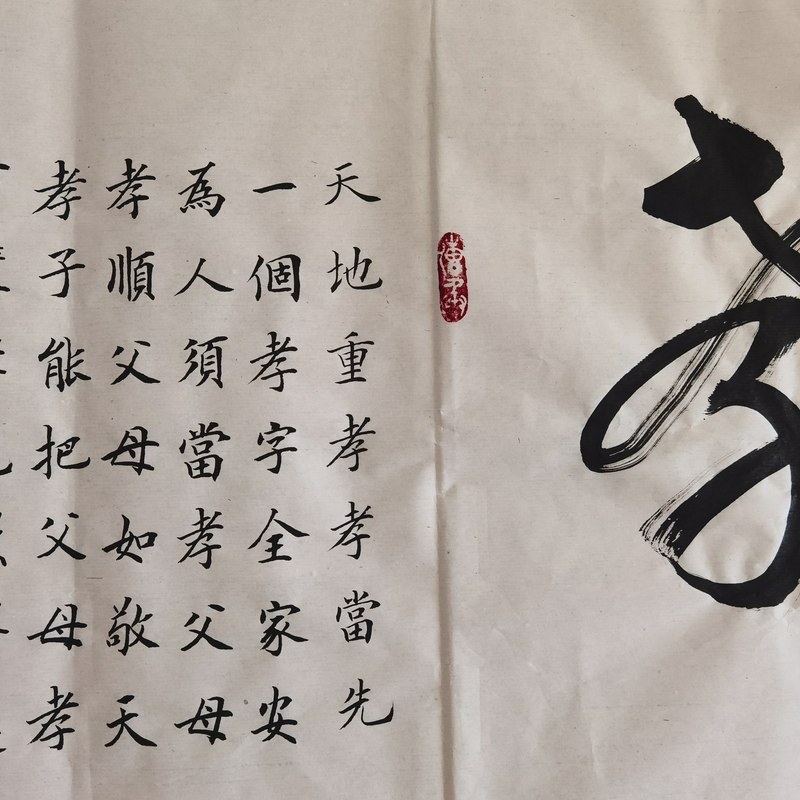 孝
天地重孝孝當先
一個孝字全家安
為人須當孝父母
孝順父母如敬天
孝子能把父母孝